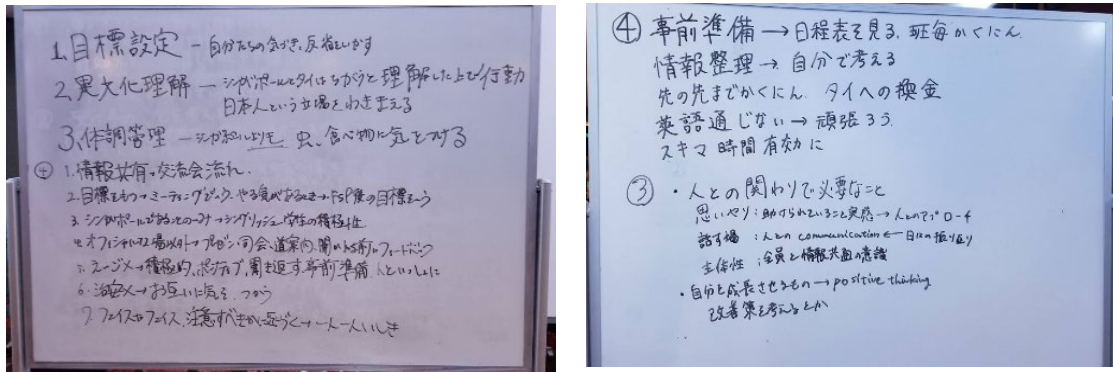 1. 目標設定 － 自分たちの気づき、反省をいかす
2. 異文化理解 － シンガポールとタイはちがうと理解した上で行動
日本人という立場をわきまえる
3. 体調管理 － シンガポールよりも虫、食べ物に気をつける
④ 1. 情報共有→交流会流れ
2. 目標をもつ→ミーティング やる気がある FSP後の目標をもつ
3. シンガポールで シングリッシュ、学生の積極性
4. オフィシャルな場以外→プレゼン、司会、道案内、聞い フィードバック
5. 積極的、ポジティブ、聞き返す、事前準備、人といっしょに
6. 治安 お互いに気をつかう
7. フェイスtoフェイス、注意すべき 近づく→一人一人いしき
④ 事前準備 → 日程表を見る、班毎かくにん
情報整理 → 自分で考える
先の先までかくにん、タイへの換金
英語通じない → 頑張ろう
スキマ時間有効に
③ ・人との関わりで必要なこと
思いやり：助けられていること実感 → 人との
話す場：人との communication ← 日々の振り返り
主体性：全員と情報共有の意識
・自分を成長させるもの → positive thinking
改善策を考えるとか